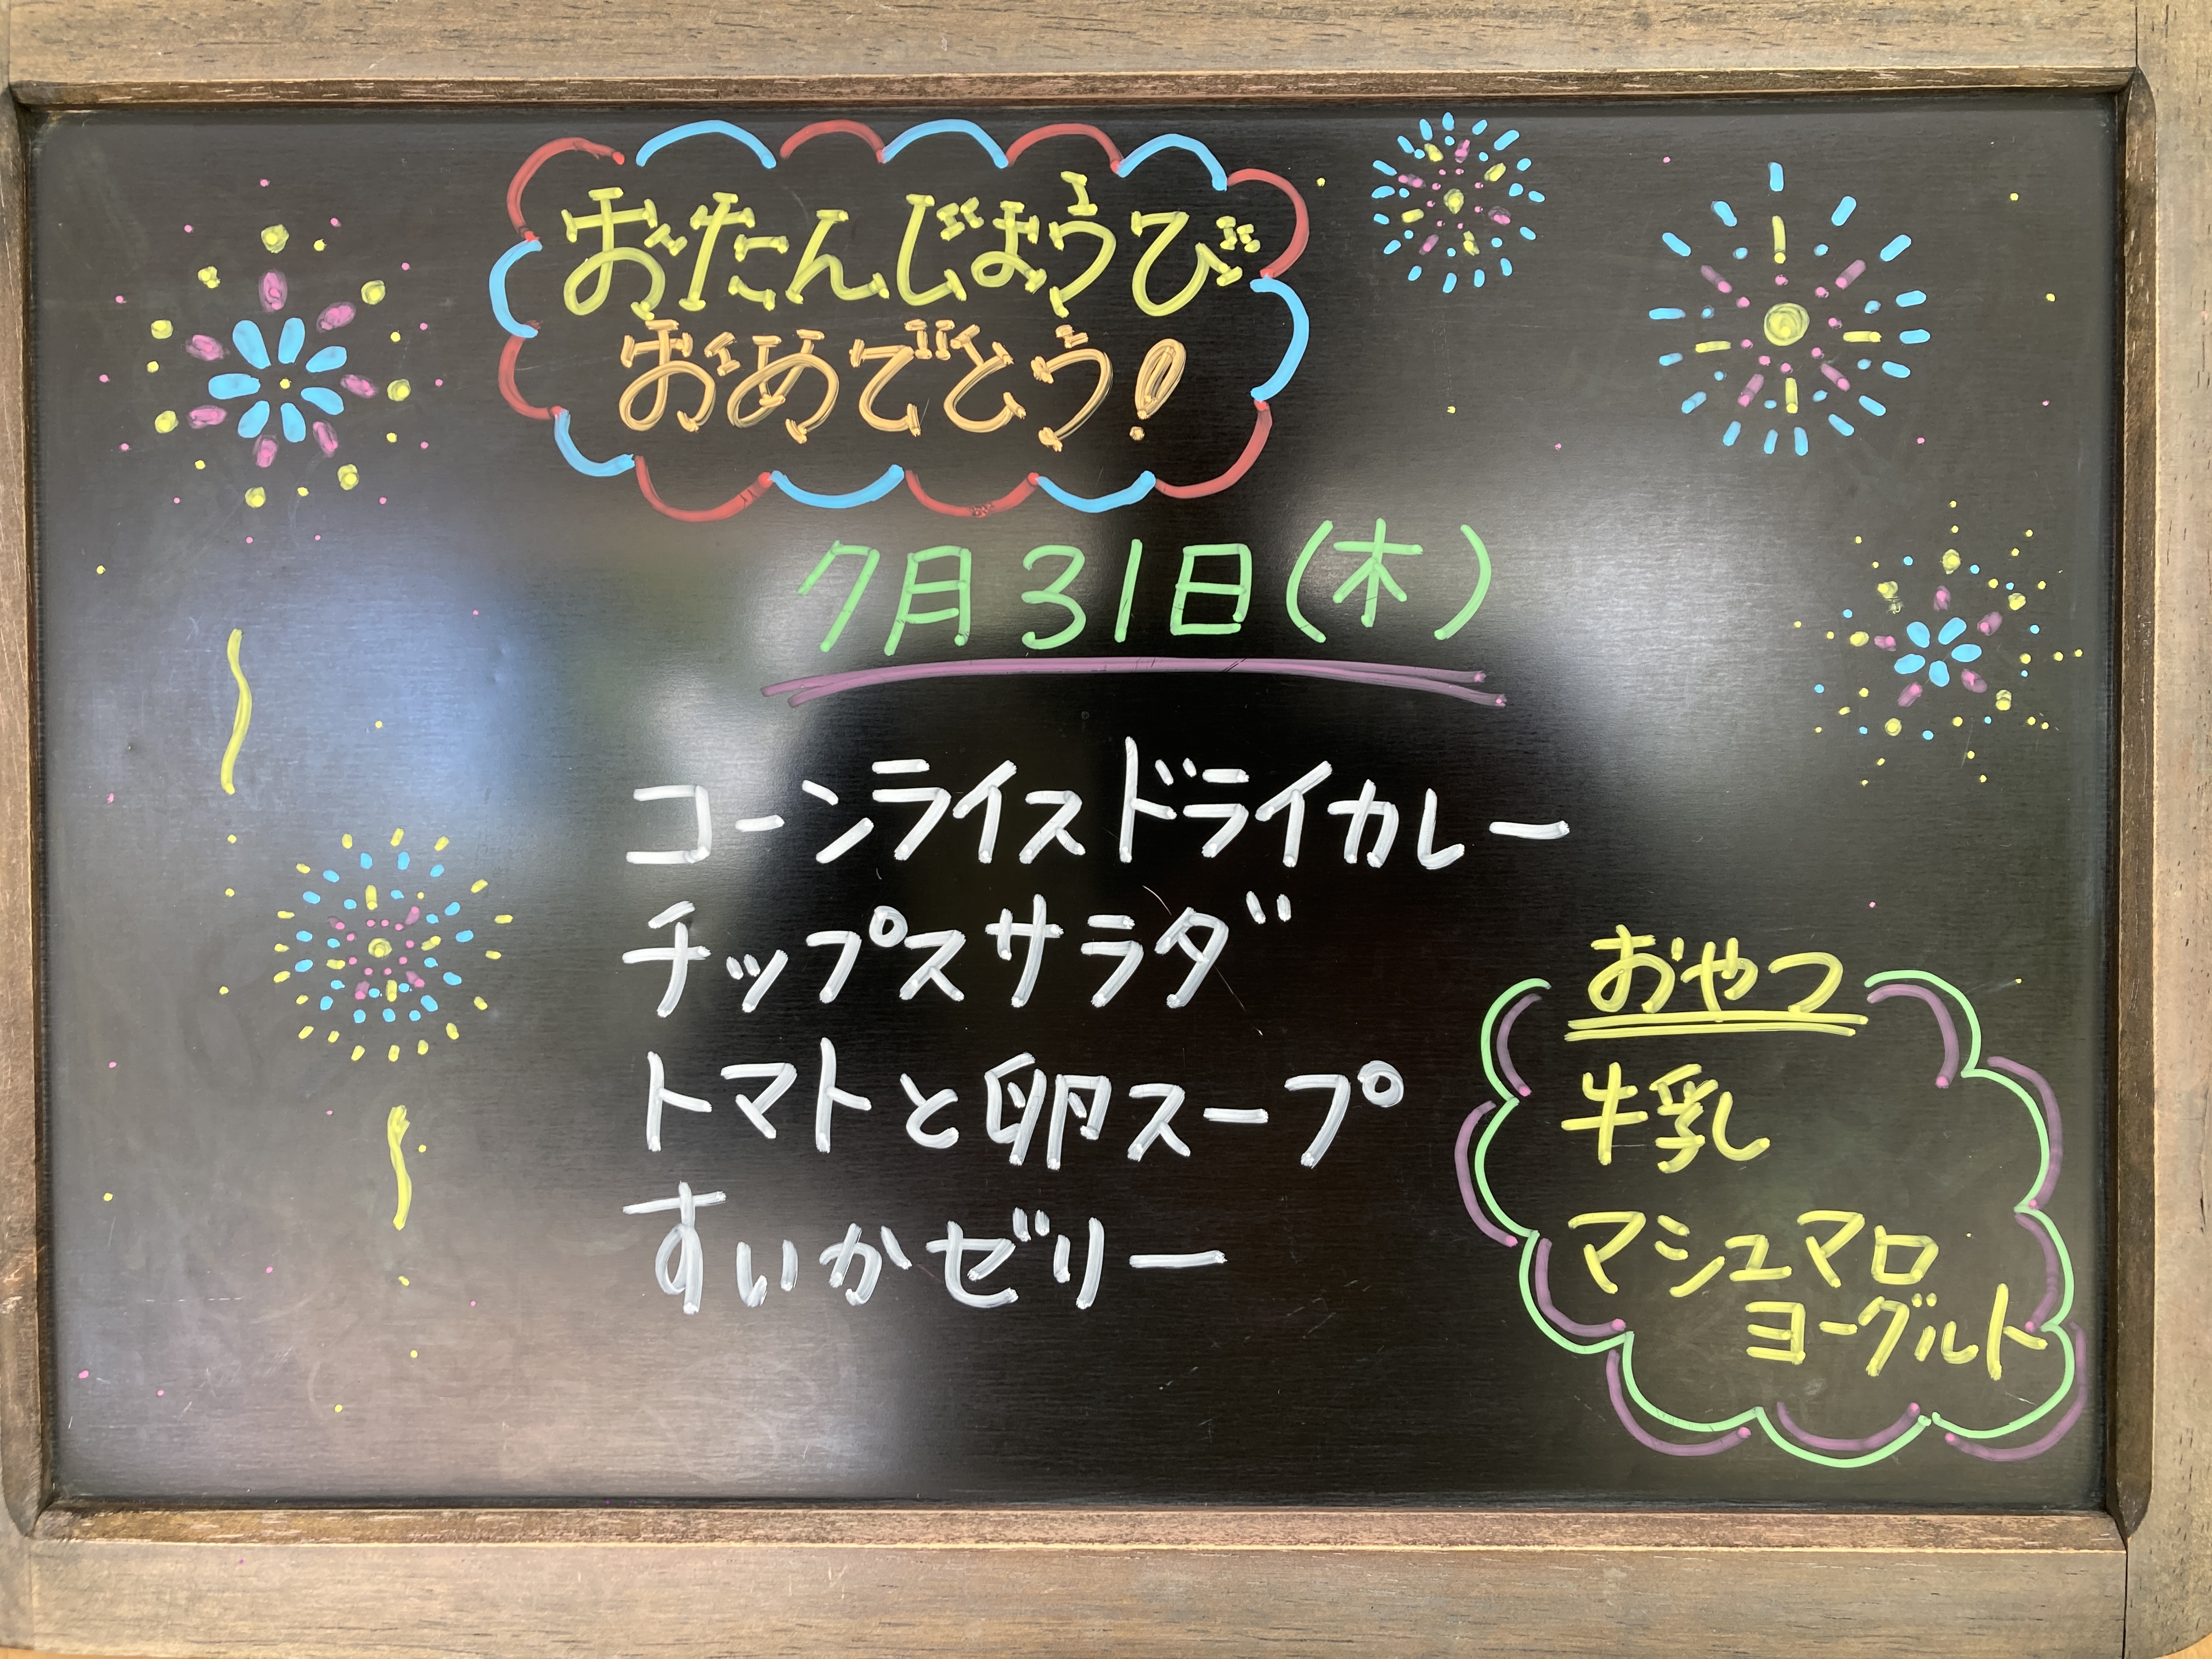 おたんじょうび
おめでとう!
7月31日(木)
コーンライスドライカレー
チップスサラダ
トマトと卵スープ
すいかゼリー
おやつ
牛乳
マシュマロ
ヨーグルト